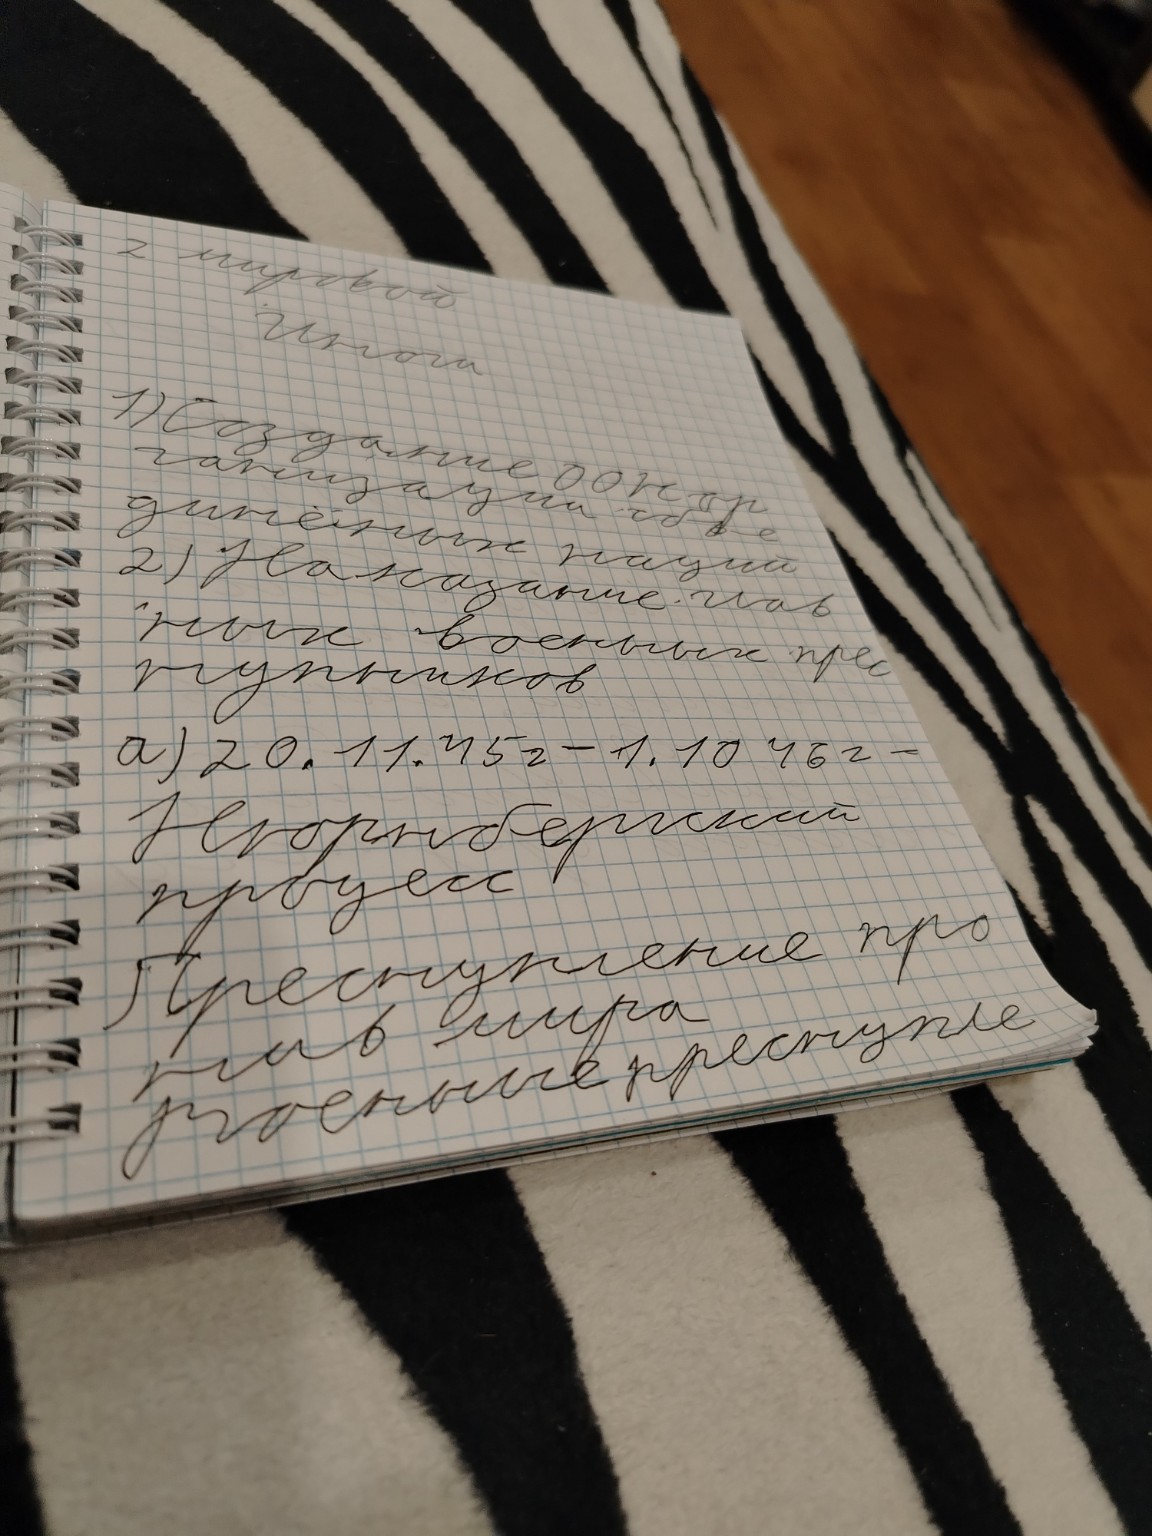 2 мировой
Итоги
1) Создание ООН ор
ганизации объе
динённых наций
2) Наказание глав
ных военных прес
тупников
а) 20.11.45г-1.10 46г-
Нюрнбергский
процесс
Преступление про
тив мира
военные преступле